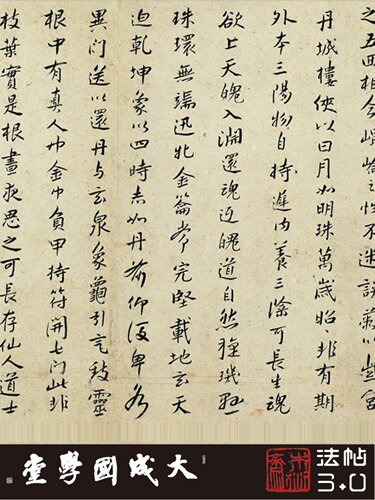 性不迷誤蔽以紫宮
丹城樓俠以日月如明珠萬歲昭〻非有期
外本三陽物自持遲內養三陰可長生魂
欲上天魄入淵還魂返魄道自然璇璣懸
珠環無端迅牝金籥常完堅載地玄天
迫乾坤象以四時赤如丹前仰後卑各
異門送以還丹與玄泉象龜引氣致靈
根中有真人巾金巾負甲持符開七門此非
枝葉實是根晝夜思之可長存仙人道士
大成國學堂
法帖
3.0